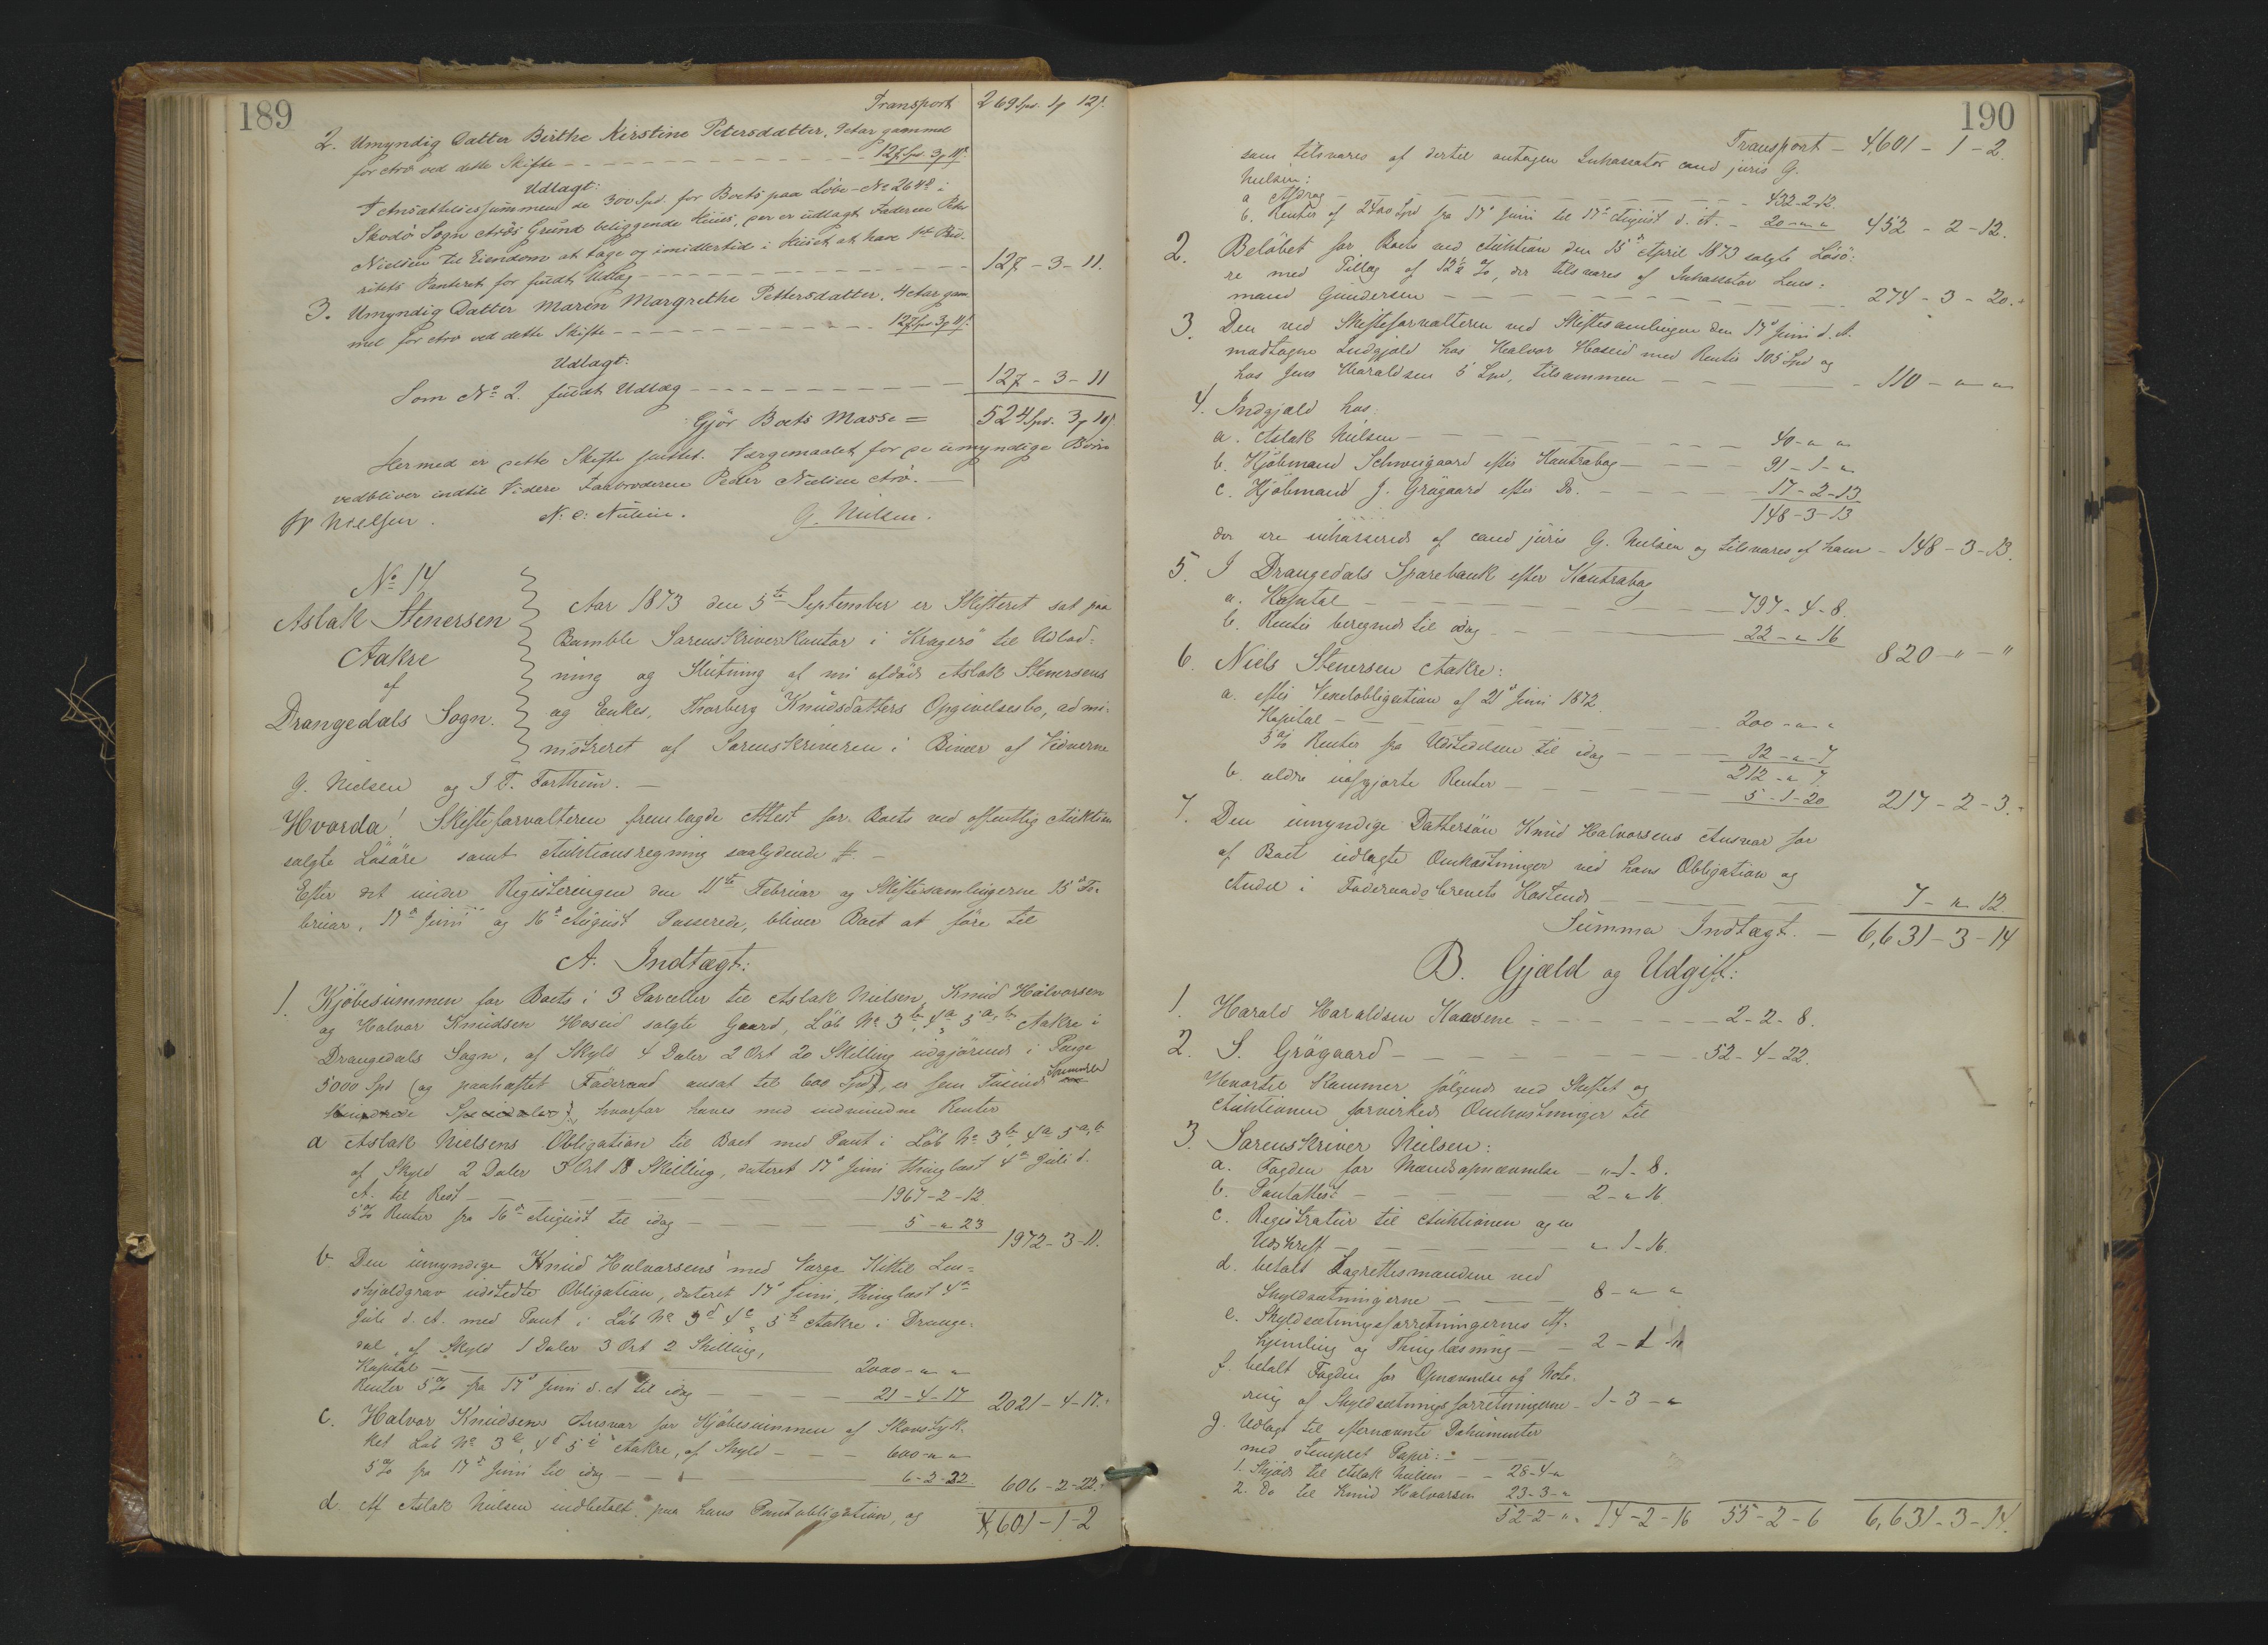 189
Transport 269 Spd. 1 ƒ 12ƒ.
2. Umyndig Datter Birthe Kirstine Petersdatter, 9 Aar gammel
for Arv ved dette Skifte - - - 127 Spd. 3 ƒ 11ƒ.
Udlagt:
I Ansættelsessummen de 300 Spd. for Boets paa Løbe-No 264 i
Skodö Sogn Arös Grund beliggende Huus, der er udlagt Faderen Peter
Nielsen til Eiendom at tage og imidlertid i Huset at have 1ste Prio-
ritets Panteret for fuldt Udlæg - - - 127 - 3 - 11.
3. Umyndig Datter Maren Margrethe Pettersdatter, 4 Aar gam
mel for Arv ved dette Skifte - - - 127 Spd. 3 ƒ 11ƒ.
Udlagt:
Som No 2. fuldt Udlæg - - - 127 - 3 - 11
Gjör Boets Masse = 524 Spd. 3 ƒ 10ƒ
Hermed er dette Skifte sluttet. Værgemaalet for de umyndige Börn
vedbliver indtil Videre Farbroderen Peder Nielsen Arö. —
N. C. Nielsen. G. Nielsen.
No 14
Aslak Stenersen
Aakre
af
Drangedals Sogn.
Aar 1873 den 5te September er Skifteret sat paa
Bamble Sorenskriverkontor i Kragerö til Udlod-
ning og Slutning af nu afdöde Aslak Stenersens
og Enkes, Thorberg Knudsdatters Opgivelsesbo, admi-
nistreret af Sorenskriveren i Bivær af Vidnerne
G. Nielsen og I. F. Forthun. —
Hvorda! Skifteforvalteren fremlagde Attest for Boets ved offentlig Auktion
solgte Lösöre samt Auktionsregning saalydende # —
Efter det under Registeringen den 11te Februar og Skiftesamlingerne 15de Fe-
bruar, 17de Juni og 16de August Passerede, bliver Boet at före til
A. Indtægt:
1. Kjöbesummen for Boets i 3 Parceller til Aslak Nielsen, Knud Halvorsen
og Halvor Knudsen Hoseid solgte Gaard, Löb No 3b, 4a, 5a,b Aakre i
Drangedals Sogn, af Skyld 4 Daler 2 Ort 20 Skilling udgjörende i Penge
5000 Spd (og paaheftet Föderaad ansat til 600 Spd), er fem Tusinde Specidaler
Hundrede Speciedaler), hvorfor haves med indvundne Renter
a Aslak Nielsens Obligation til Boet med Pant i Löb No 3b, 4a 5a,b
af Skyld 2 Daler 3 Ort 18 Skilling, dateret 17de Juni thinglæst 4de Juli d.
A. til Rest - - - 1967-2-12
5% Renter fra 16de August til idag - - - 5 - " 23 1972-3-11.
b. Den umyndige Knud Halvorsens med Værge Kittil Lon-
skjoldgrav udstedte Obligation, dateret 17de Juni, thinglæst 4de
Juli d. A. med Pant i Löb No 3d 4c, 5b Aakre i Drange-
dal, af Skyld 1 Daler 3 Ort 2 Skilling,
Kapital - - - 2000 - " "
Renter 5% fra 17de Juni d. A. til idag - - - 21-4-17 2021-4-17.
c. Halvor Knudsens Ansvar for Kjöbesummen af Skovstyk-
ket Löb No 3e, 4d 5i Aakre, af Skyld - - - 600 - " "
5% fra 17de Juni til idag - - - 6-2-22. 606-2-22.
d. Af Aslak Nielsen indbetalt paa hans Pantobligation, og
4,601-1-2
190
Transport - 4,601-1-2.
som tilsvares af dertil antagen Inkassator cand juris G.
Nielsen:
a Afdrag - - - 432-2-12.
b. Renter af 2400 Spd fra 17de Juni til 17de August d. A. - 20-"-" 452-2-12.
2. Belöbet for Boets ved Auktion den 15de April 1873 solgte Lösö-
re med Tillæg af 12½ %, der tilsvares af Inkassator Lens-
mand Gundersen - - - 274-3-20.
3. Den ved Skifteforvalteren ved Skiftesamlingen den 17de Juni d. A.
modtagne Indgjæld hos Halvor Hoseid med Renter 105 Spd og
hos Jens Haraldsen 5 Spd, tilsammen - - - 110-"-"
4. Indgjæld hos:
a. Aslak Nielsen - - - 40-" "
b. Kjöbmand Schweigaard efter Kontrabog - - - 91-1-"
c. Kjöbmand J. Grögaard efter Do. - - - 17-2-13
148-3-13
der ere inkasserede af cand juris G. Nielsen og tilsvares af ham - 148-3-13.
5. I Drangedals Sparebank efter Kontrabog
a. Kapital - - - 797-4-8.
b. Renter beregnede til idag - - - 22-" 16 820-"-"
6. Niels Stenersen Aakre:
a. efter Vexelobligation af 21de Juni 1872.
Kapital - - - 200-"-"
5% Renter fra Udstedelsen til idag - - - 12-"-7
212-" 7
b. ældre uopgjorte Renter - - - 5-1-20 217-2-3.
7. Den umyndige Dattersön Knud Halvorsens Ansvar for
af Boet udlagte Omkostninger ved hans Obligation og
Andel i Föderaadsbrevets Kostende - - - 7-"-12.
Summa Indtægt. — 6,631-3-14
B. Gjæld og Udgift:
1. Harald Haraldsen Kaasene - - - 2-2-8.
2. S. Grögaard - - - 52-4-22.
Hvortil kommer fölgende ved Skiftet og
Auktionen forvirkede Omkostninger til
3. Sorenskriver Nielsen:
a. Fogden for Mændsopnævnelse - "-1-8.
b. Pantattest - - - 2-" 16
c. Registratur til Auktionen og en
Udskrift - - - "-1-16.
d. betalt Lagrettesmændene ved
Skyldsætningerne - - - 8-" "
e. Skyldsætningsforretningernes Af-
hjemling og Thinglæsning - - 2-1
f. betalt Fogden for Opnævnelse og Note-
ring af Skyldsætningsforretningerne - 1-3-"
g. Udlagt til efternævnte Dokumenter
med stemplet Papir: - - -
1. Skjöde til Aslak Nielsen - - 28-4-"
2. Do til Knud Halvorsen 23-3-"
52-2-". 14-2-16 55-2-6 6,631-3-14.